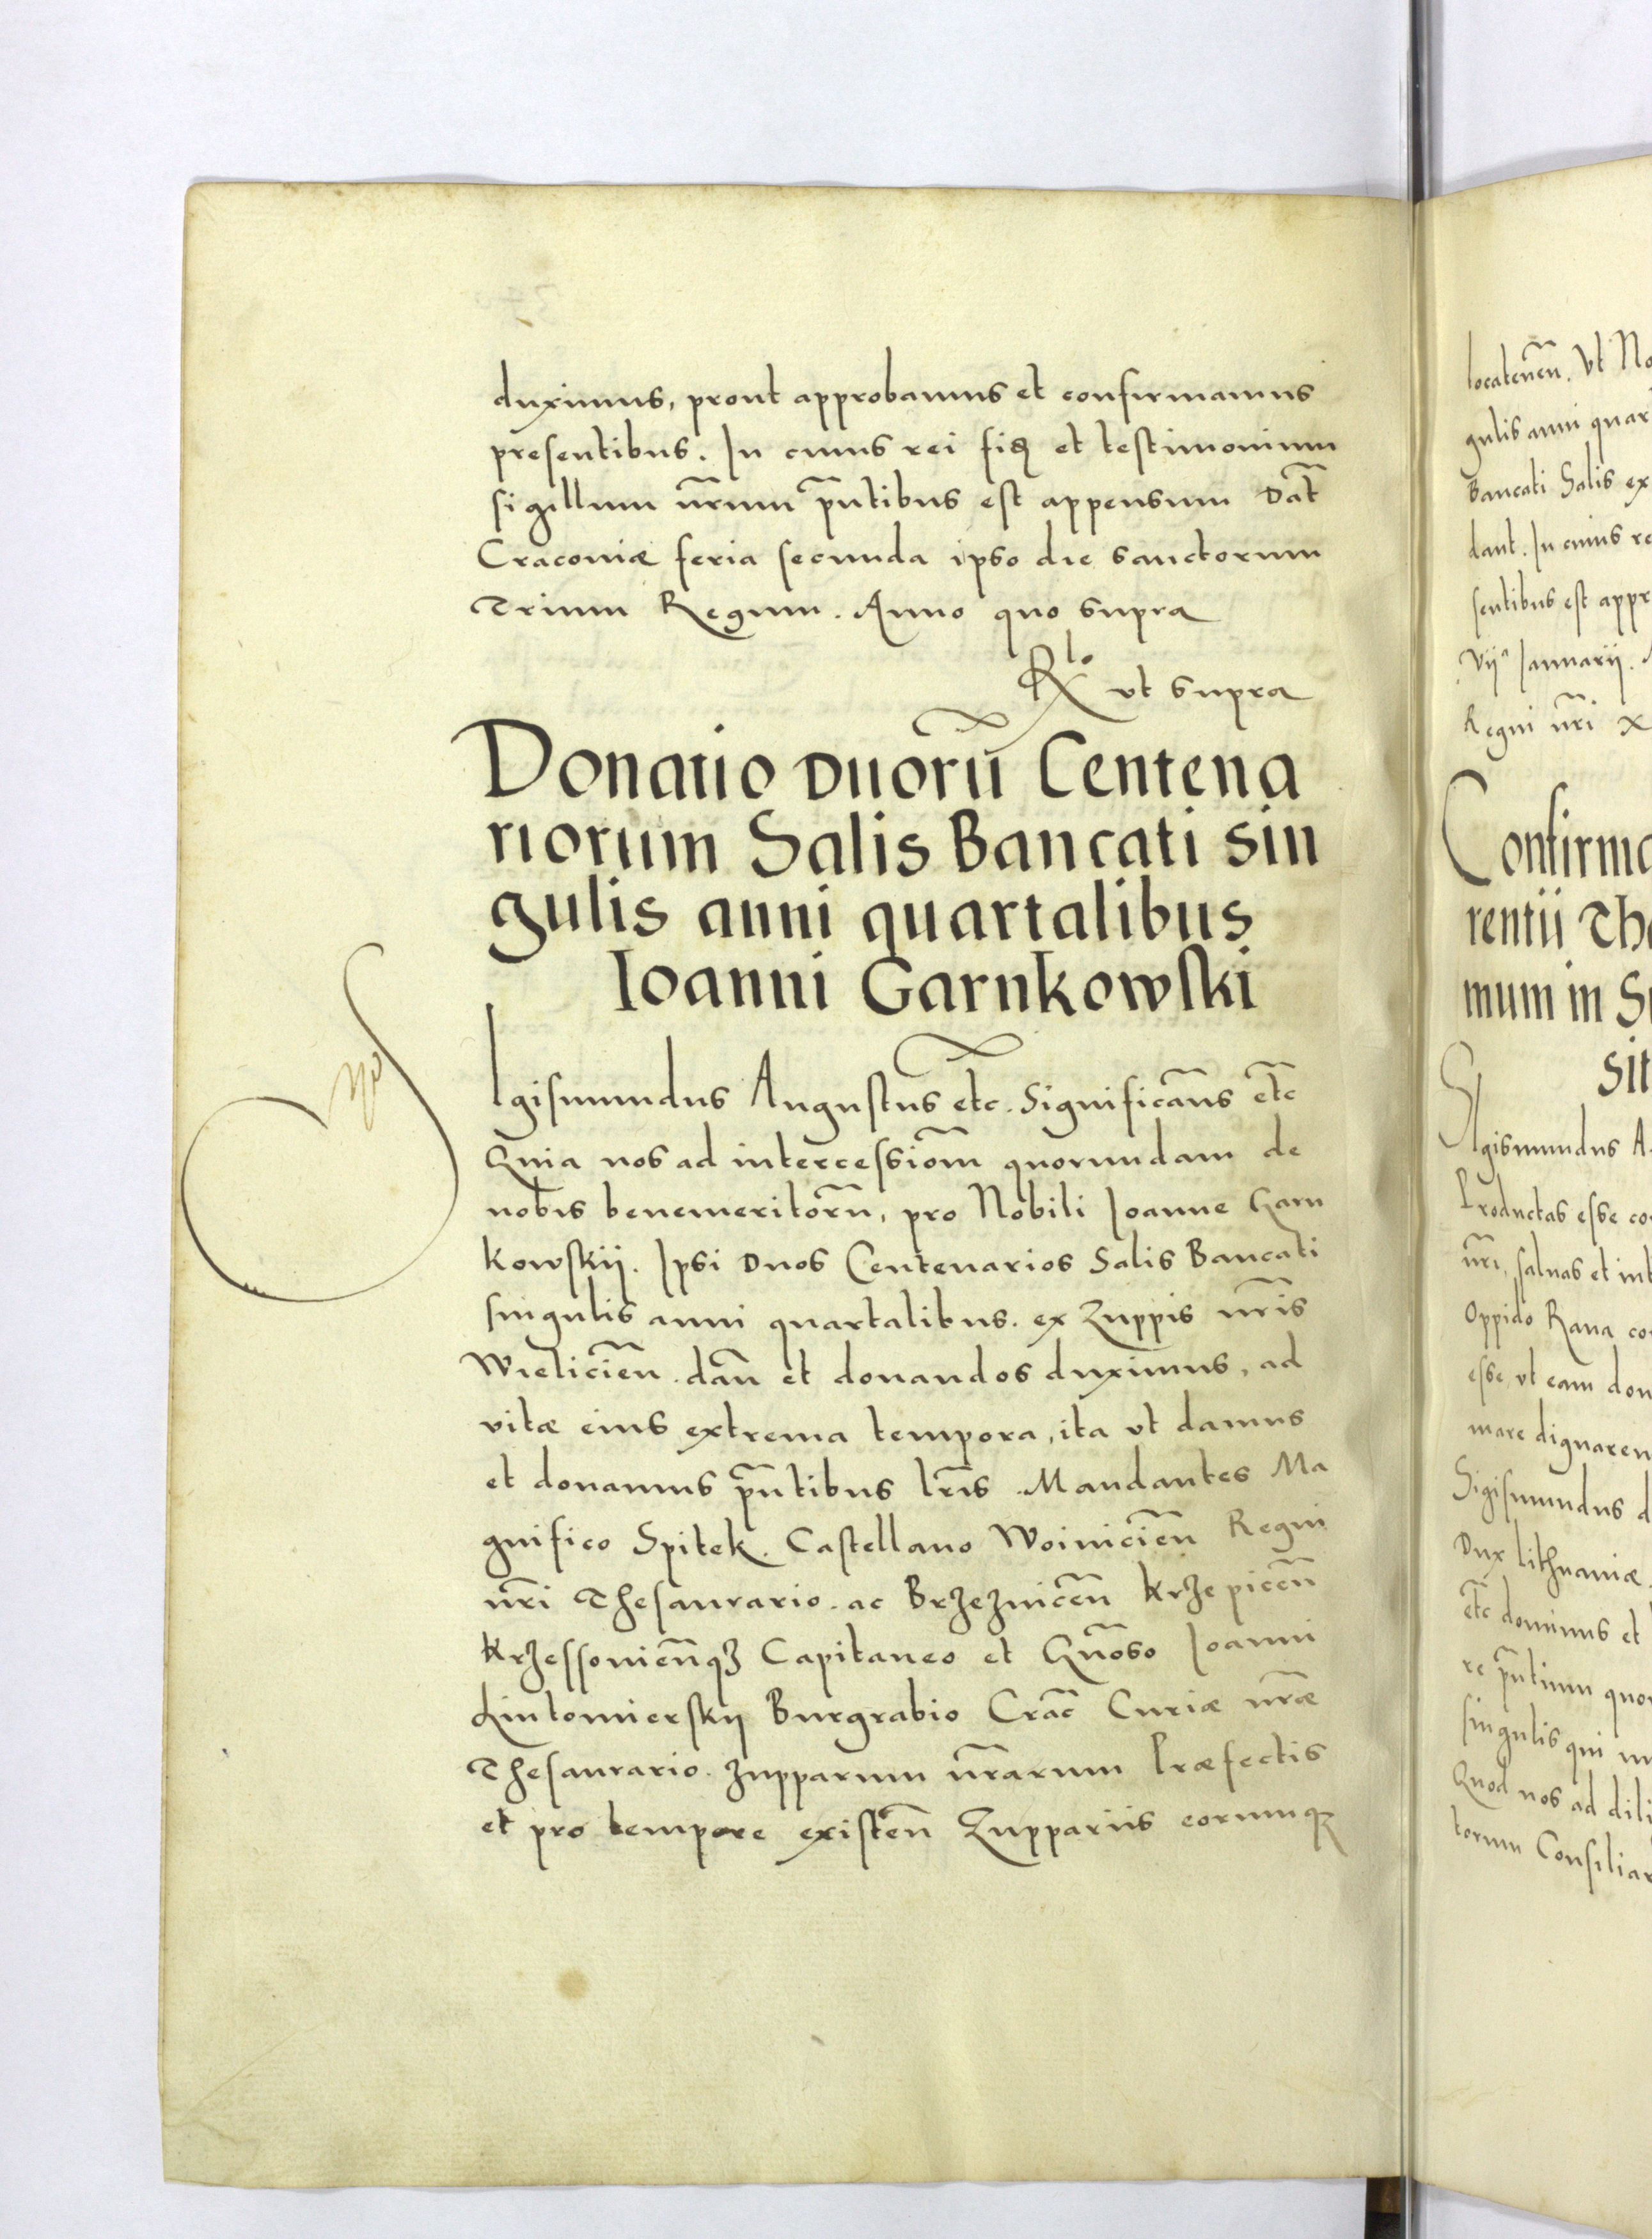 duximus, prout approbamus et confirmamus
presentibus. In cuius rei fiđ et testimonium
sigillum nr̃um pñtibus est appensum Dat̃
Cracoviæ feria secunda ipso die sanctorum
Trium Regum. Anno quo supra
Rlo ut supra
Donatio Duorũ Centena
riorum Salis Bancati sin
gulis anni quartalibus
Ioanni Garnkowski
Igismundus Augustus etc. Significam̃s et̃c
Quia nos ad intercessiom̃ quorundam de
nobis benemeritorũ, pro Nobili Ioanne Garn
kowskij. Ipsi Duos Centenarios Salis Bancati
singulis anni quartalibus. ex Zuppis nr̃is
Wielicieñ. dañ et donandos duximus, ad
vitæ eius extrema tempora, ita vt damus
et donamus pñtibus lr̃is. Mandantes Ma
gnifico Spitek. Castellano Woinicieñ Regni
nr̃i Thesaurario. ac Brzezniceñ Krzepiceñ
Krzessonieñqz Capitaneo et Gñoso Ioanni
Lutomierskij Burgrabio Crac̃ Curiæ nr̃æ
Thesaurario. Zupparum nr̃arum Præfectis
et pro tempore existeñ Zuppariis eorumqz
locateneñ. Vt No
gulis anni quar
Bancati Salis ex
dant. In cuius re
sentibus est appe
Vija Ianuarij.
Regni nr̃i X
Confirma
rentii Tho
mum in S
sit
SIgismundus A
Productas esse co
nr̃i, saluas et int
Oppido Rava co
esse, vt eam don
mare dignarem
Sigismundus d
Dux Lithuaniæ.
et̃c dominus et
re pñtium quo
singulis qui
Quod nos ad dili
torum Consiliar